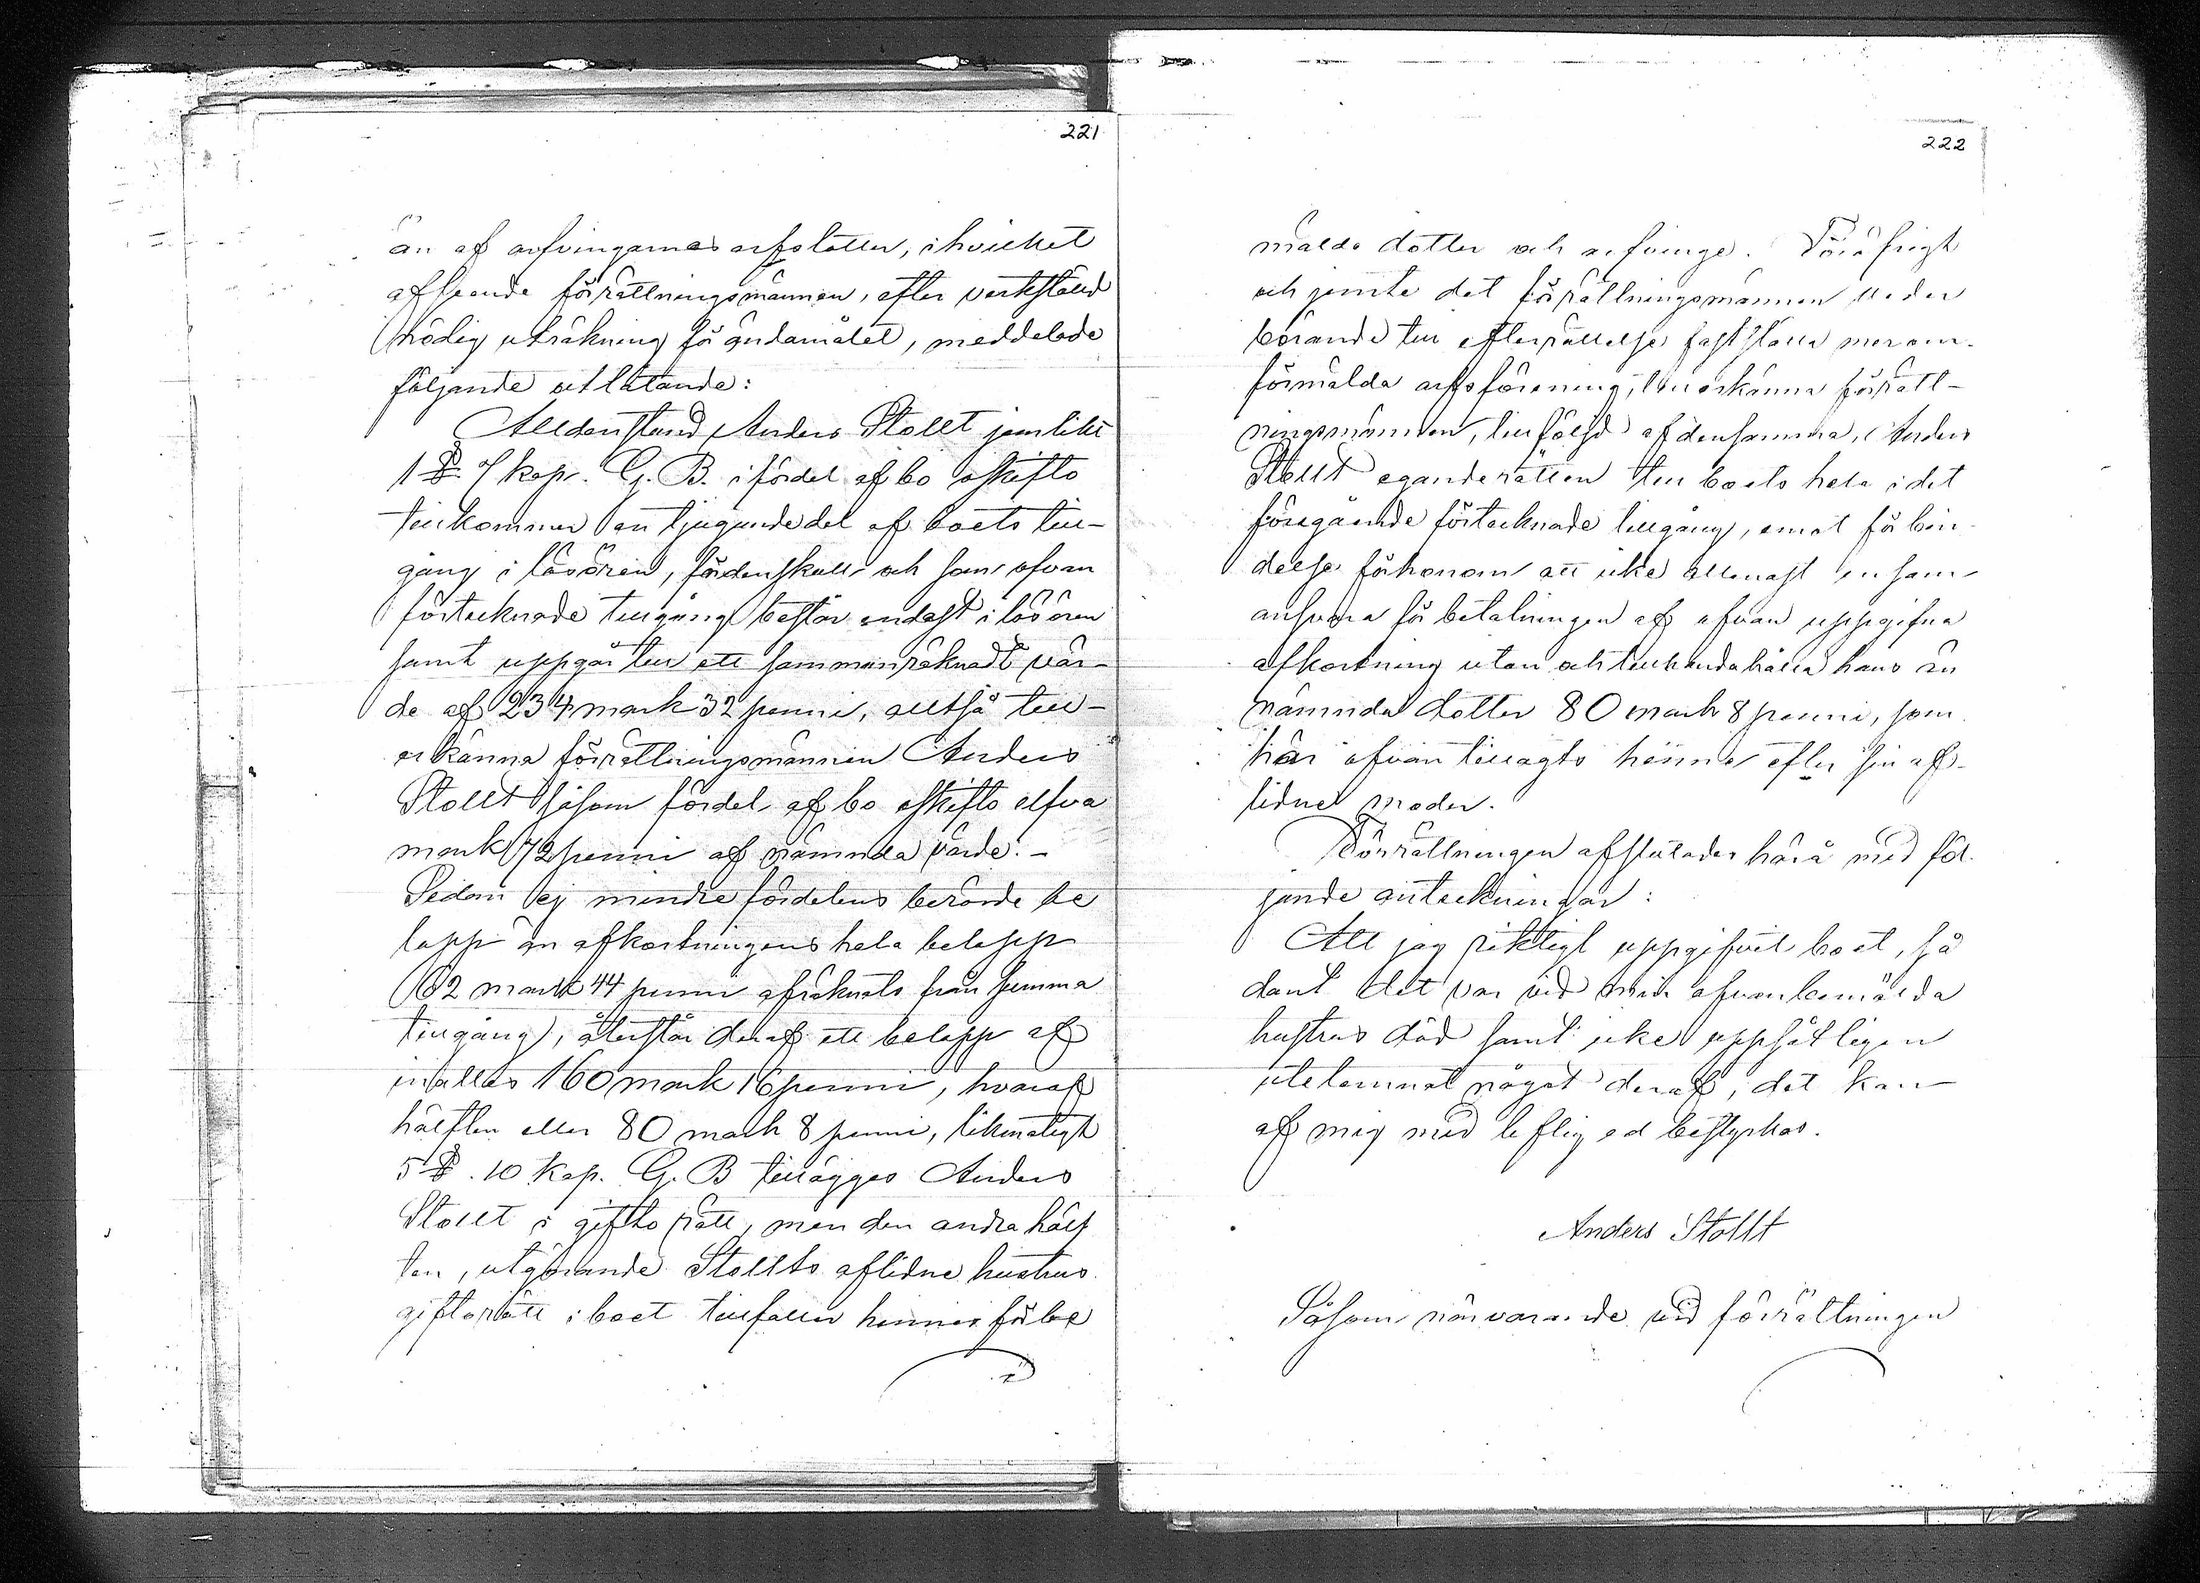 221
än af arfvingarnes arfslotter, i hvilket
afseende förrättningsmännen, efter verkstäld
nödig uträkning för ändamålet, meddelade
följande utlåtande:
Alldenstund Anders Stollt jemlikt
1 §. 17 kap. G. B. i fördel af bo oskifto
tillkommer en tjugundedel af boets till-
gång i lösören, fördenskull och som ofvan
förtecknade tillgång består endast i lösören
samt uppgår till ett sammanräknadt vär-
de af 234 mark 32 penni, alltså till-
erkänna förrättningsmännen Anders
Stollt såsom fördel af bo oskifto elfva
mark 72 penni af nämnda värde. -
Sedan ej mindre fördelens berörde be
lopp än afkortningens hela belopp
(62 mark 44 penni afräknats från summa
tillgång), återstår deraf ett belopp af
inalles 160 mark 16 penni, hvaraf
hälften eller 80 mark 8 penni, likmätigt
5 §. 10 kap. G. B tillägges Anders
Stollt i giftorätt, men den andra hälf
ten, utgörande Stollts aflidne hustrus
giftorätt i boet tillfaller hennes förbe
222
mälda dotter och arfvinge. Föröfrigt
och jemte det förrättningsmännen veder
börande till efterrättelse fastställa merom-
förmälda arfsförening, tillerkänna förrätt-
ningsmännen, till följd af densamma, Anders
Stollt eganderätten till boets hela i det
föregående förtecknade tillgång, emot förbin
delse för honom att icke allenast ensam
ansvara för betalningen af ofvan uppgifna
afkortning utan och tillhandahålla hans än
nämnda dotter 80 mark 8 penni, som
här ofvan tillagts henne efter sin af-
lidne moder.
Förrättningen afslutades härå med föl-
jande anteckningar:
Att jag riktigt uppgifvit boet, så
dant det var vid min ofvanbemälda
hustrus död samt icke uppsåtligen
utelemnat något deraf, det kan
af mig med liflig ed bestyrkas.
Anders Stollt
Såsom närvarande vid förrättningen